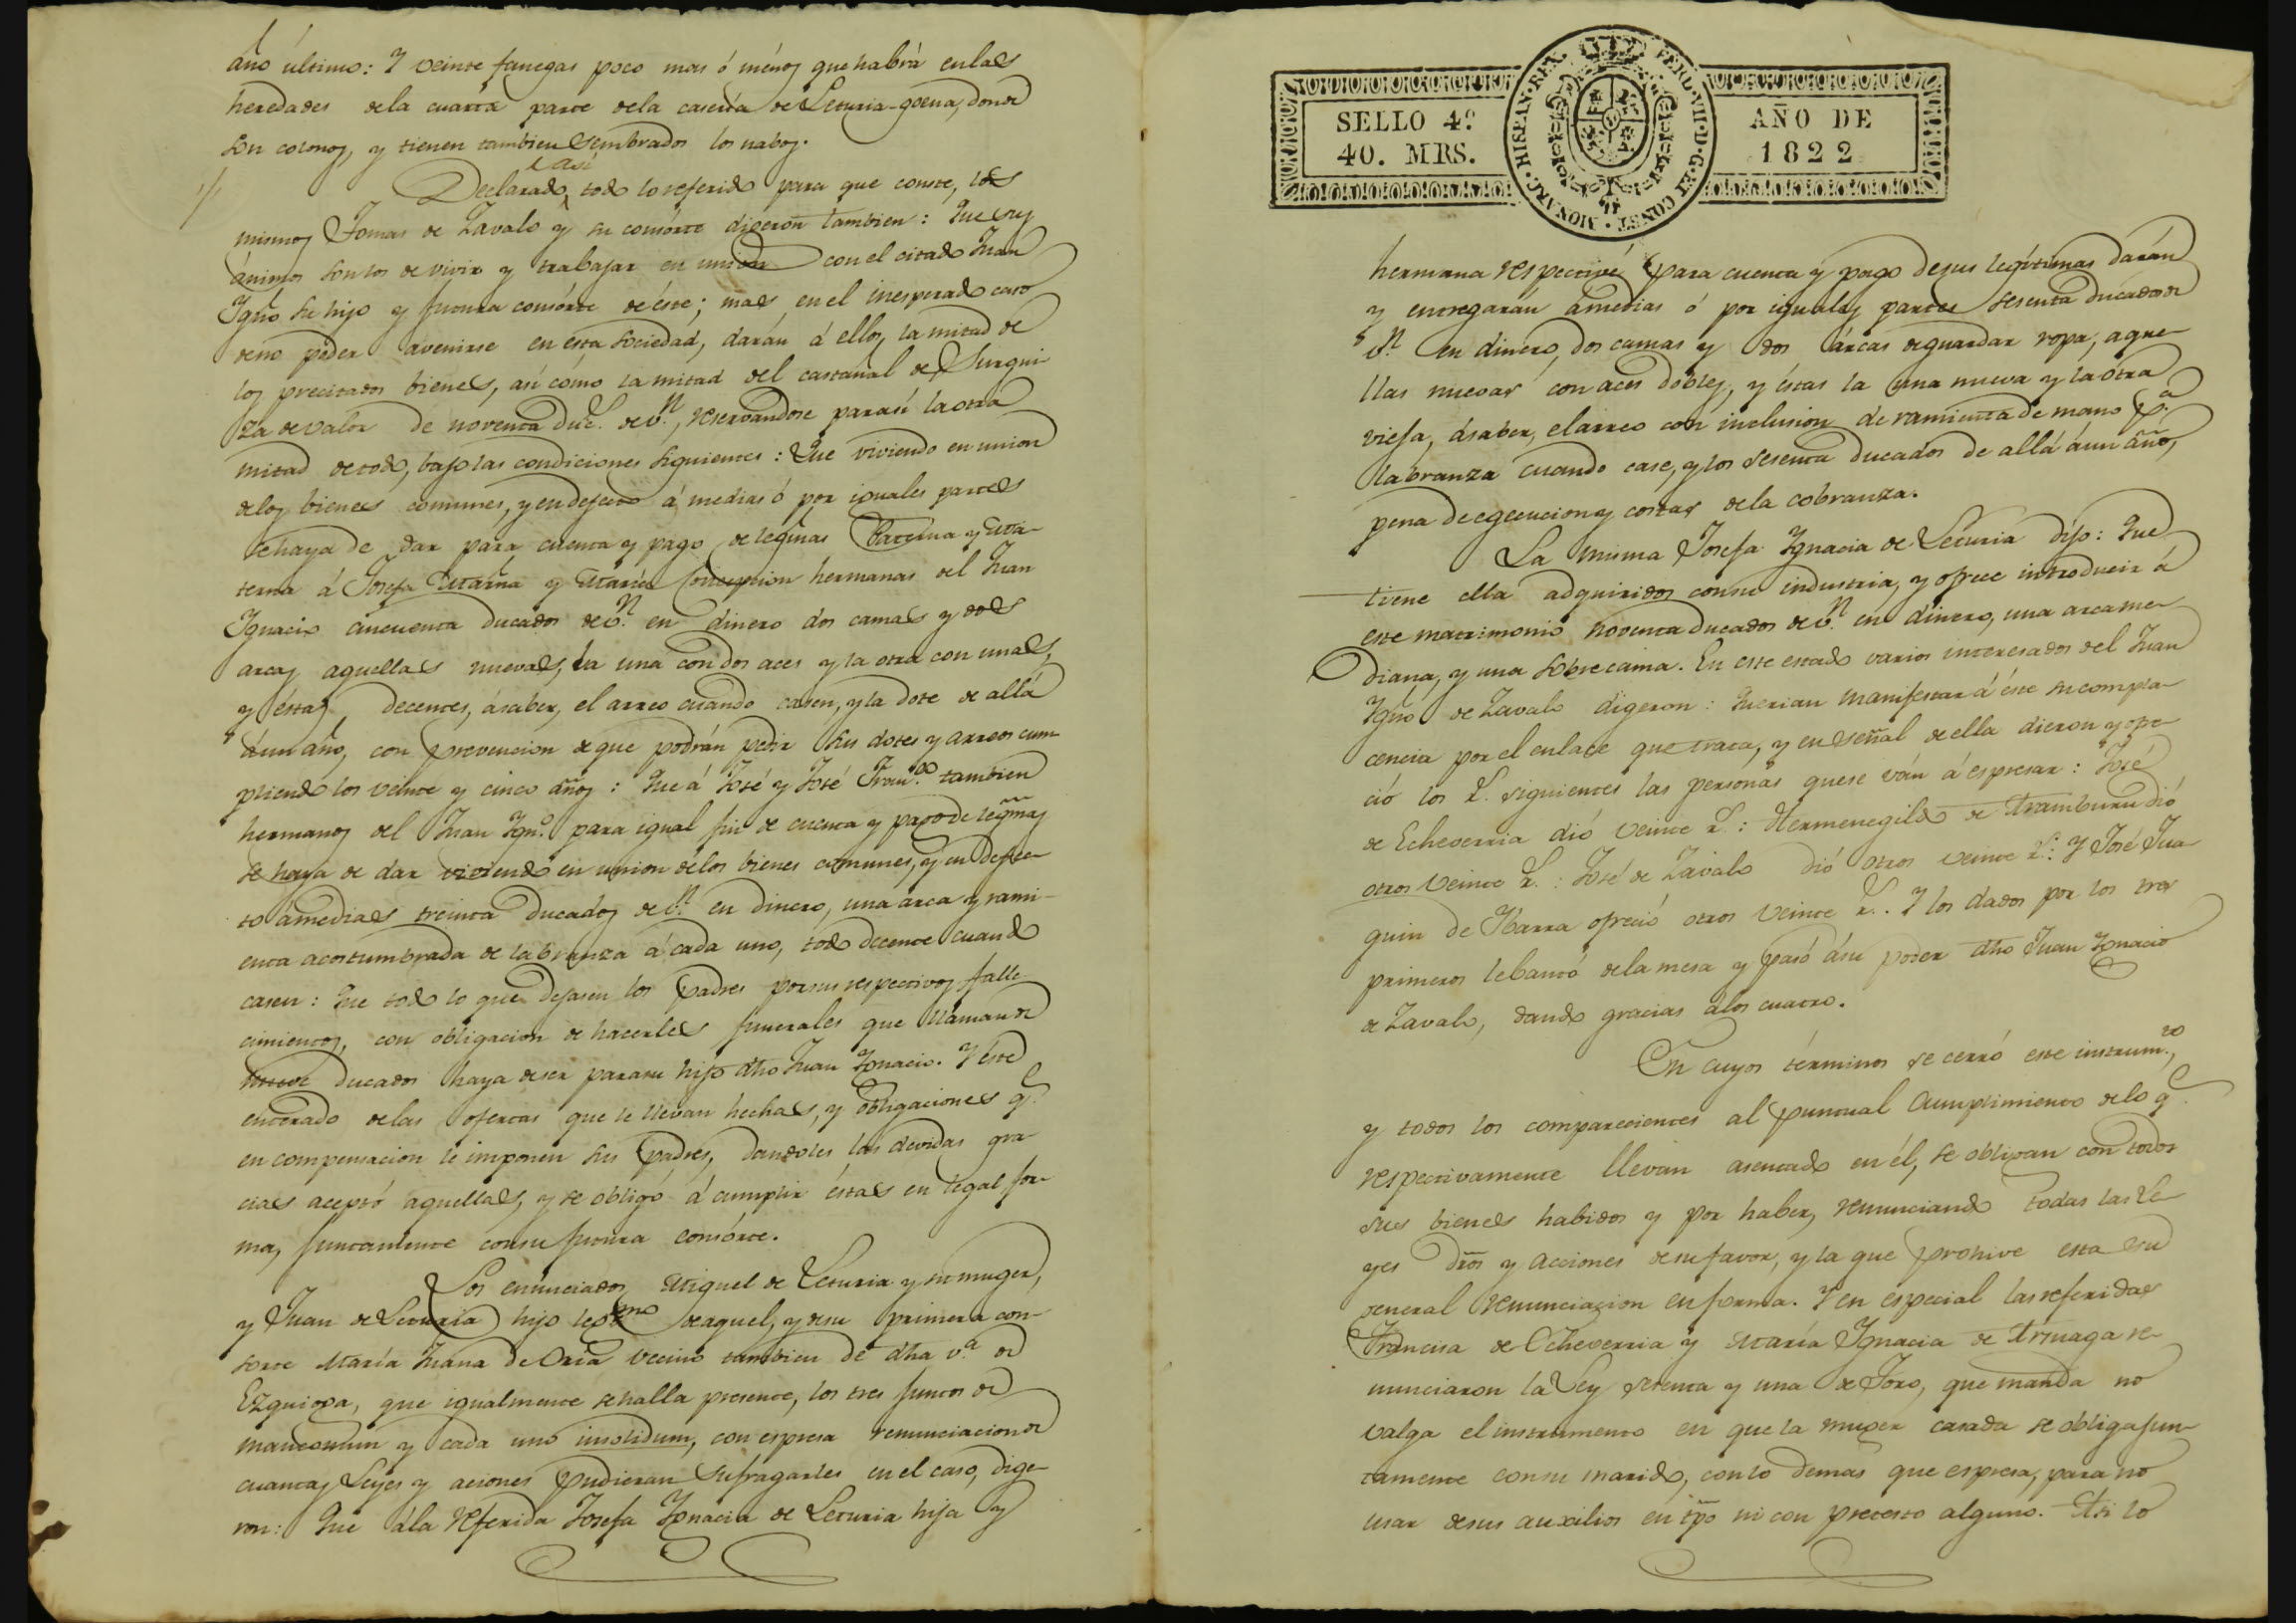 año último: Y veinte fanegas poco mas ó ménos que habrá en las
heredades de la cuarta parte de la caseria de Leturia-goena, donde
son colonos, y tienen tambien sembrados los nabos.
casi
Declarado, todo lo referido para que conste, los
mismos Tomas de Zavalo y su consórte digeron tambien: Que sus
ánimos son los de vivir y trabajar en union con el citado Juan
Ygño su hijo y futura consórte de éste; mas en el inesperado caso
de no poder avenirse en esta sociedad, darán á ellos la mitad de
los precitados bienes, asi cómo la mitad del castañal de Surqui-
za de valor de noventa duc.s de v.n, reservandose para sí la otra
mitad de todo, bajo las condiciones siguientes: Que viviendo en union
de los bienes comunes, y en defecto á medias ó por iguales partes
se haya de dar para cuenta y pago de legmas Paterna y Ma-
terna á Josefa Maria y María Concepcion hermanas del Juan
Ygnacio cincuenta ducados de v.n en dinero dos camas y dos
arcas aquellas nuevas, la una con dos aces y la otra con una,
y éstas decentes, á saber, el arreo cuando casen, y la dote de allá
á un año, con prevencion de que podrán pedir sus dotes y arreos cum-
pliendo los veinte y cinco años: Que á José y José Fran.co tambien
hermanos del Juan Ygn.o para igual fin de cuenta y pago de legmas
se haya de dar viviendo en union de los bienes comunes, y en defec-
to á medias treinta ducados de v.n en dinero, una arca y rami-
enta acostumbrada de labranza á cada uno, todo decente cuando
casen: Que todo lo que dejasen los Padres por sus respectivos falle-
cimientos, con obligacion de hacerles funerales que llaman de
ducados haya de ser para su hijo dho Juan Ygnacio. Y éste
enterado de las ofertas que le llevan hechas, y obligaciones q.e
en compensacion le imponen sus Padres, dandoles las devidas gra-
cias aceptó aquellas, y se obligó á cumplir éstas en legal for-
ma, juntamente con su futura consórte.
Los enunciados Miguel de Leturia y su muger,
y Juan de Leturia hijo legmo de aquel, y de su primera con-
sorte María Juana de Oria vecino tambien de dha v.a de
Ezquioga, que igualmente se halla presente, los tres juntos de
mancomun y cada uno insolidum, con espresa renunciacion de
cuantas Leyes y aciones pudieran sufragarles en el caso, dige-
ron: Que á la referida Josefa Ygnacia de Leturia hija y
SELLO 4º
40. MRS.
HISPAN. REX. FERD. VII. D. G. ET CONST. MONARC.
AÑO DE
1822
hermana respectivé para cuenta y pago de sus legítimas darán
y entregarán á medias ó por iguales partes sesenta ducados de
v.n en dinero, dos camas y dos árcas de guardar ropa, aque-
llas nuevas con aces dobles, y éstas la una nueva y la otra
vieja, á saber, el arreo con inclusion de ramienta de mano p.a
labranza cuando case, y los sesenta ducados de allá á un año,
pena de egecucion y costas de la cobranza.
La misma Josefa Ygnacia de Leturia dijo: Que
tiene ella adquiridos con su industria, y ofrece introducir á
este matrimonio noventa ducados de v.n en dinero, una arca me-
diana, y una sobrecama. En este estado varios interesados del Juan
Ygño de Zavalo digeron: Querian manifestar á éste su compla-
cencia por el enlace que trata, y en señal de ella dieron y ofre-
ció los r.s siguientes las personas que se ván á espresar: José
de Echeverria dió veinte r.s: Hermenegildo de Aramburu dió
otros veinte r.s: José de Zavalo dió otros veinte r.s: Y José Joa-
quin de Ybarra ofreció otros veinte r.s. Y los dados por los tres
primeros lebantó de la mesa y pasó á su poder dho Juan Ygnacio
de Zavalo, dando gracias á los cuatro.
En cuyos términos se cerró este instrum.to,
y todos los comparecientes al puntual cumplimiento de lo q.e
respectivamente llevan asentado en él, se obligan con todos
sus bienes habidos y por haber, renunciando todas las Le-
yes dros y acciones de su favor, y la que prohive esta su
general renunciazion en forma. Y en especial las referidas
Francisa de Echeverria y María Ygnacia de Arsuaga re-
nunciaron la Ley sesenta y una de Toro, que manda no
valga el instrumento en que la muger casada se obliga jun-
tamente con su marido, con lo demas que espresa, para no
usar de sus auxilios en tpo ni con pretesto alguno. Asi lo